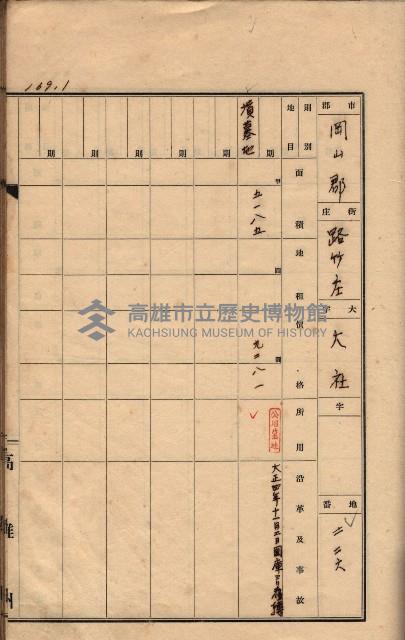 169.1
市
郡
岡山郡
街
庄
路竹庄
大字
大社
字
地番
二二六
則別
地目
面積
地租
價格
所用
沿革及事故
墳墓地
則
則
則
則
則
則
甲
五一八五
円
円
九二八一
公用墓地
大正四年十一月三日國庫ヨリ
高雄州
高雄市立歷史博物館
KACHSIUNG MUSEUM OF HISTORY